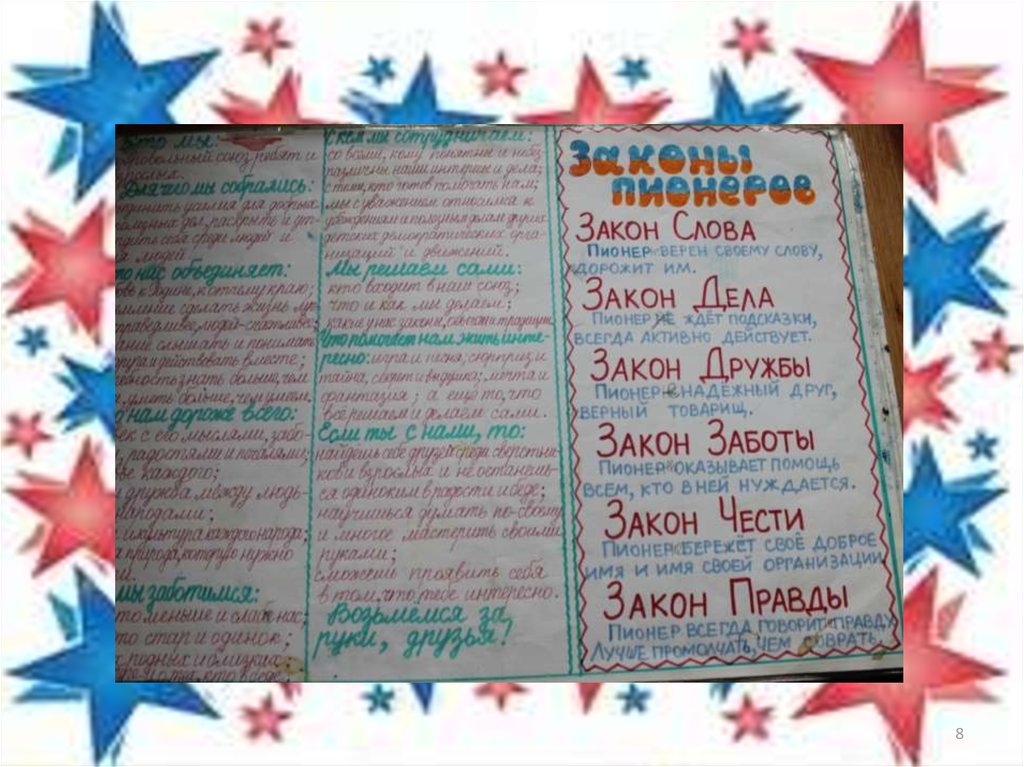 Кто мы:
добровольный союз ребят и
взрослых.
Для чего мы собрались:
единить усилия для добрых
полезных дел, раскрыть и ут-
дить себя среди людей и
людей.
то нас объединяет:
к Родине, к отчему краю;
сделать жизнь лу-
справедливее, людей-счастливее;
слышать и понимать
друга и действовать вместе;
знать больше, чем
уметь больше, чем умеем.
нам дороже всего:
век с его мыслями, забо-
, радостями и печалями;
каждого;
дружба между людь-
народами;
и культура каждого народа;
природа, которую нужно
мы заботимся:
кто меньше и слабее нас;
кто стар и одинок;
родных и близких;
С кем мы сотрудничаем:
со всеми, кому понятны и небез-
различны наши интересы и дела;
с теми, кто готов помогать нам;
мы с уважением относимся к
убеждениям и полезным делам других
детских демократических орга-
низаций и движений.
Мы решаем сами:
кто входит в наш союз;
что и как мы делаем;
какие у нас законы, обычаи и традиции
Что помогает нам жить инте-
ресно: игра и песня; сюрприз и
тайна, секрет и выдумка; мечта и
фантазия; а ещё то, что
всё решаем и делаем сами.
Если ты с нами, то:
найдешь себе друзей среди сверстни-
ков и взрослых и не останешь-
ся одиноким в радости и беде;
научишься думать по-своему
и многое мастерить своими
руками;
сможешь проявить себя
в том, что тебе интересно.
Возьмёмся за
руки, друзья!
Законы
пионеров
Закон Слова
Пионер верен своему слову,
дорожит им.
Закон Дела
Пионер не ждёт подсказки,
всегда активно действует.
Закон Дружбы
Пионер - надёжный друг,
верный товарищ.
Закон Заботы
Пионер оказывает помощь
всем, кто в ней нуждается.
Закон Чести
Пионер бережёт своё доброе
имя и имя своей организации
Закон Правды
Пионер всегда говорит правду
Лучше промолчать, чем соврать.
8